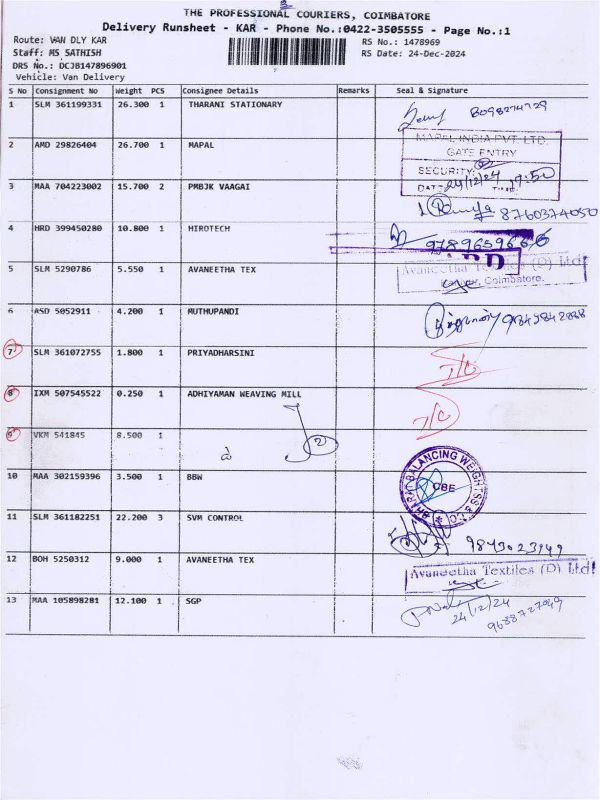 THE PROFESSIONAL COURIERS, COIMBATORE
Delivery Runsheet - KAR - Phone No.:0422-3505555 - Page No.:1
Route: VAN DLY KAR RS No.: 1478969
Staff: MS SATHISH RS Date: 24-Dec-2024
DRS No.: DCJB147896901
Vehicle: Van Delivery
S No Consignment No Weight PCS Consignee Details Remarks Seal & Signature
1 SLM 361199331 26.300 1 THARANI STATIONARY
2 AMD 29826404 26.700 1 MAPAL
MAPAL INDIA PVT. LTD.
GATE ENTRY
SECURITY:
DATE 24/12/24 TIME
3 MAA 704223002 15.700 2 PMBJK VAAGAI
8760374050
4 HRD 399450280 10.800 1 HIROTECH
5 SLM 5290786 5.550 1 AVANEETHA TEX Avaneetha Textiles (D) Ltd
Coimbatore.
6 ASD 5052911 4.200 1 MUTHUPANDI
7 SLM 361072755 1.800 1 PRIYADHARSINI
8 IXM 507545522 0.250 1 ADHIYAMAN WEAVING MILL
9 VKM 541845 8.500 1
2
10 MAA 302159396 3.500 1 BBW
BHARAT BALANCING WEIGHTSS & CO
CBE
11 SLM 361182251 22.200 3 SVM CONTROL
9843023949
12 BOH 5250312 9.000 1 AVANEETHA TEX Avaneetha Textiles (D) Ltd
13 MAA 105898281 12.100 1 SGP
24/12/24
9688727049